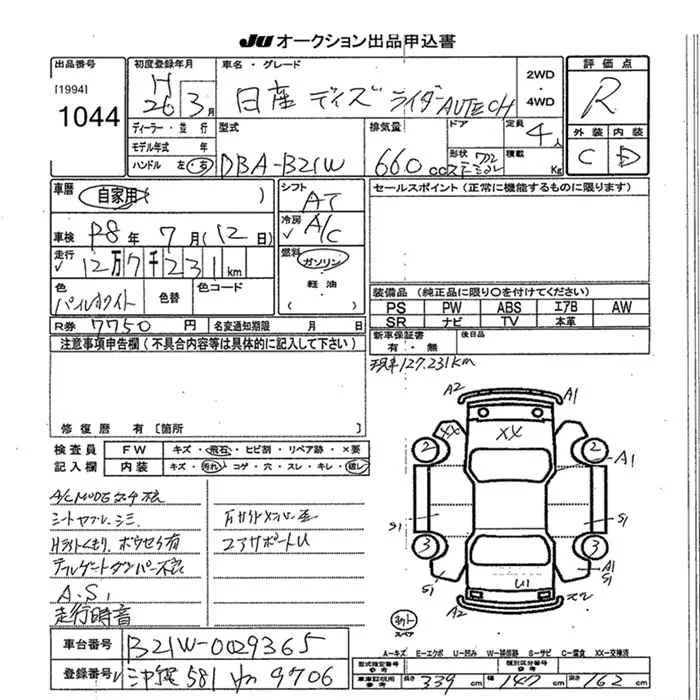 JU オークション出品申込書
出品番号
[1994]
1044
初度登録年月
H
26 3月
車名・グレード
日産 デイズ ライダー AUTECH
2WD
・
4WD
評価点
R
外装 内装
C D
ディーラー・並行
モデル年式 年
ハンドル 左・右
型式
DBA-B21W
排気量
660 cc
ドア
形状
定員
4人
積載
Kg
車歴
自家用
( )
シフト
AT
セールスポイント(正常に機能するものに限ります)
車検 R8年 7月(12日)
冷房
A/C
走行
12万7千231km
燃料
ガソリン
・
軽油
( )
色
パールホワイト
色替
色コード
装備品(純正品に限り○を付けてください)
PS PW ABS エアB AW
SR ナビ TV 本革
R券 7750円
名変通知期限 月 日
新車保証書
有・無
後日品
注意事項申告欄(不具合内容等は具体的に記入して下さい)
現車127,231km
修復歴 有[箇所
検査員
記入欄
FW キズ・飛石・ヒビ割・リペア跡・×要
内装 キズ・汚れ・コゲ・穴・スレ・キレ・破レ
シートヤブレ・シミ
Hライトくもり、ボウセイ有
テールゲートダンパー不良
A.S1
走行時音
コアサポートU
A2 A1
XX XX
2 2
A1
S1 S1
3 3
S1 U1 A1
S1
A2
スペア
車台番号 B21W-0029365
登録番号 沖縄 581 9706
A=キズ E=エクボ U=凹み W=補修跡 S=サビ C=腐食 XX=交換済
型式指定番号
参考
類別区分番号
参考
車庫証明用
参考
長さ 339cm 幅 147cm 高さ 162cm